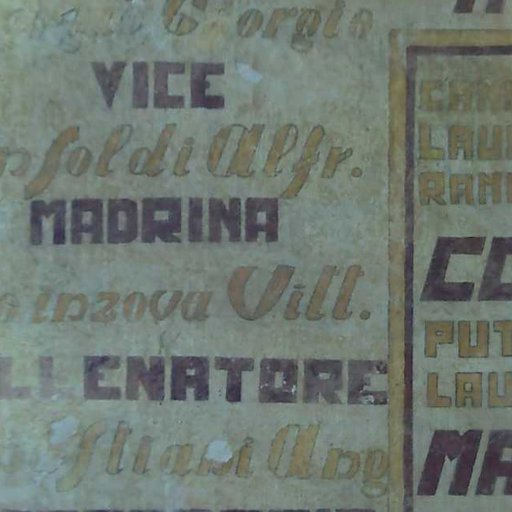 Giorgio
VICE
nsoldi Alfr.
MADRINA
inzova Vitt.
LLENATORE
stiani Ang
CAN
LAU
RAN
CO
PUT
LAU
MA